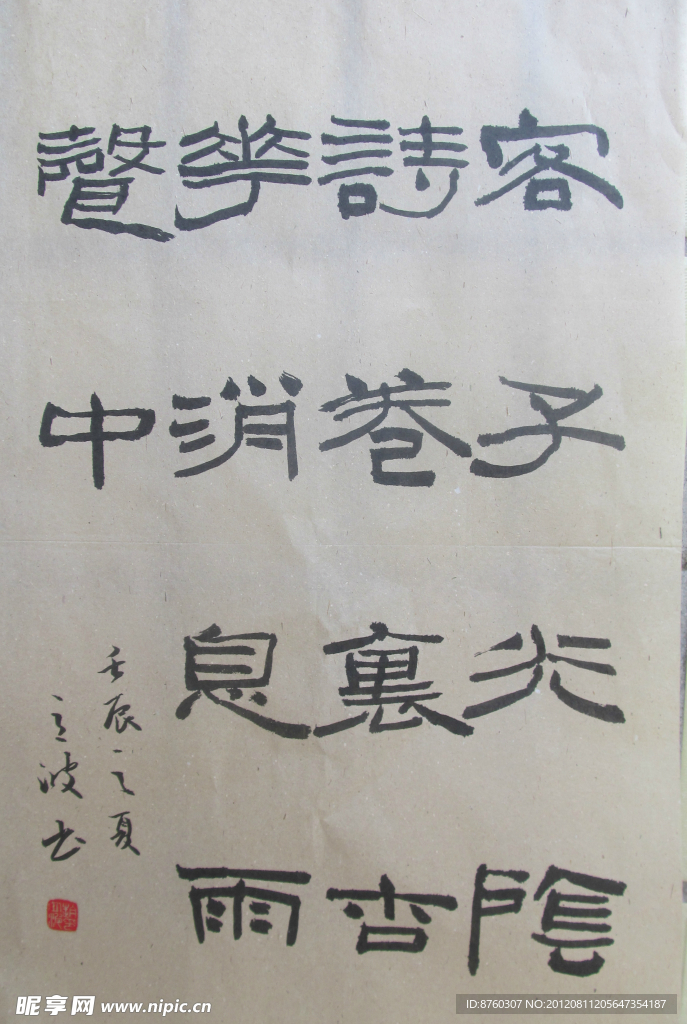 客子光陰
詩卷裏杏
華消息雨
聲中
壬辰之夏
波书
昵享网 www.nipic.cn
ID:8760307 NO:20120811205647354187